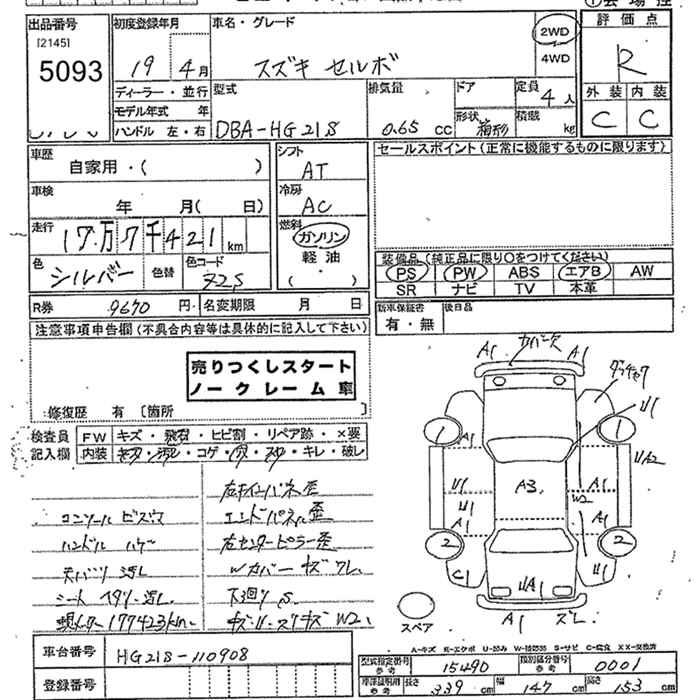 出品番号
[2145]
5093
初度登録年月
19 年 4月
ディーラー・並行
モデル年式 年
ハンドル 左・右
車名・グレード
スズキ セルボ
2WD
4WD
型式
DBA-HG21S
排気量
0.65 cc
ドア
形状
箱形
定員
4人
積載
kg
評価点
R
外装 内装
C C
車歴
自家用・( )
車検
年 月( 日)
走行
17万7千421km
色
シルバー
色替
色コード
Z2S
シフト
AT
冷房
AC
燃料
ガソリン
軽油
( )
セールスポイント(正常に機能するものに限ります)
装備品(純正品に限り○をつけてください)
PS PW ABS エアB AW
SR ナビ TV 本革
R券 9670円
名変期限 月 日
新車保証書
有・無
後日品
注意事項申告欄(不具合内容等は具体的に記入して下さい)
売りつくしスタート
ノークレーム車
修復歴 有 [箇所 ]
検査員
記入欄
FW キズ・飛石・ヒビ割・リペア跡・×要
内装 キズ・汚れ・コゲ・穴・スレ・キレ・破レ
コンソール ビスウ
ハンドル ハゲ
天バリ 汚レ
シート ヘタリ・汚レ
現メーター 177423km
エンドパネル歪
右センターピラー歪
Wカバー キズ ワレ
下回り S
キズ・U・スリキズ W2
A1
カバーワレ
A1
U1
A1
1
1
UA2
A3
W2
U1
U1
A1
A1
2
2
C1
UA1
U1
A1
ズレ
スペア
A-キズ E-エクボ U-凹み W-補修跡 S-サビ C-腐食 XX-交換済
車台番号
HG21S-110908
登録番号
型式指定番号
参考
15490
類別区分番号
参考
0001
長さ
339 cm
幅
147 cm
高さ
153 cm